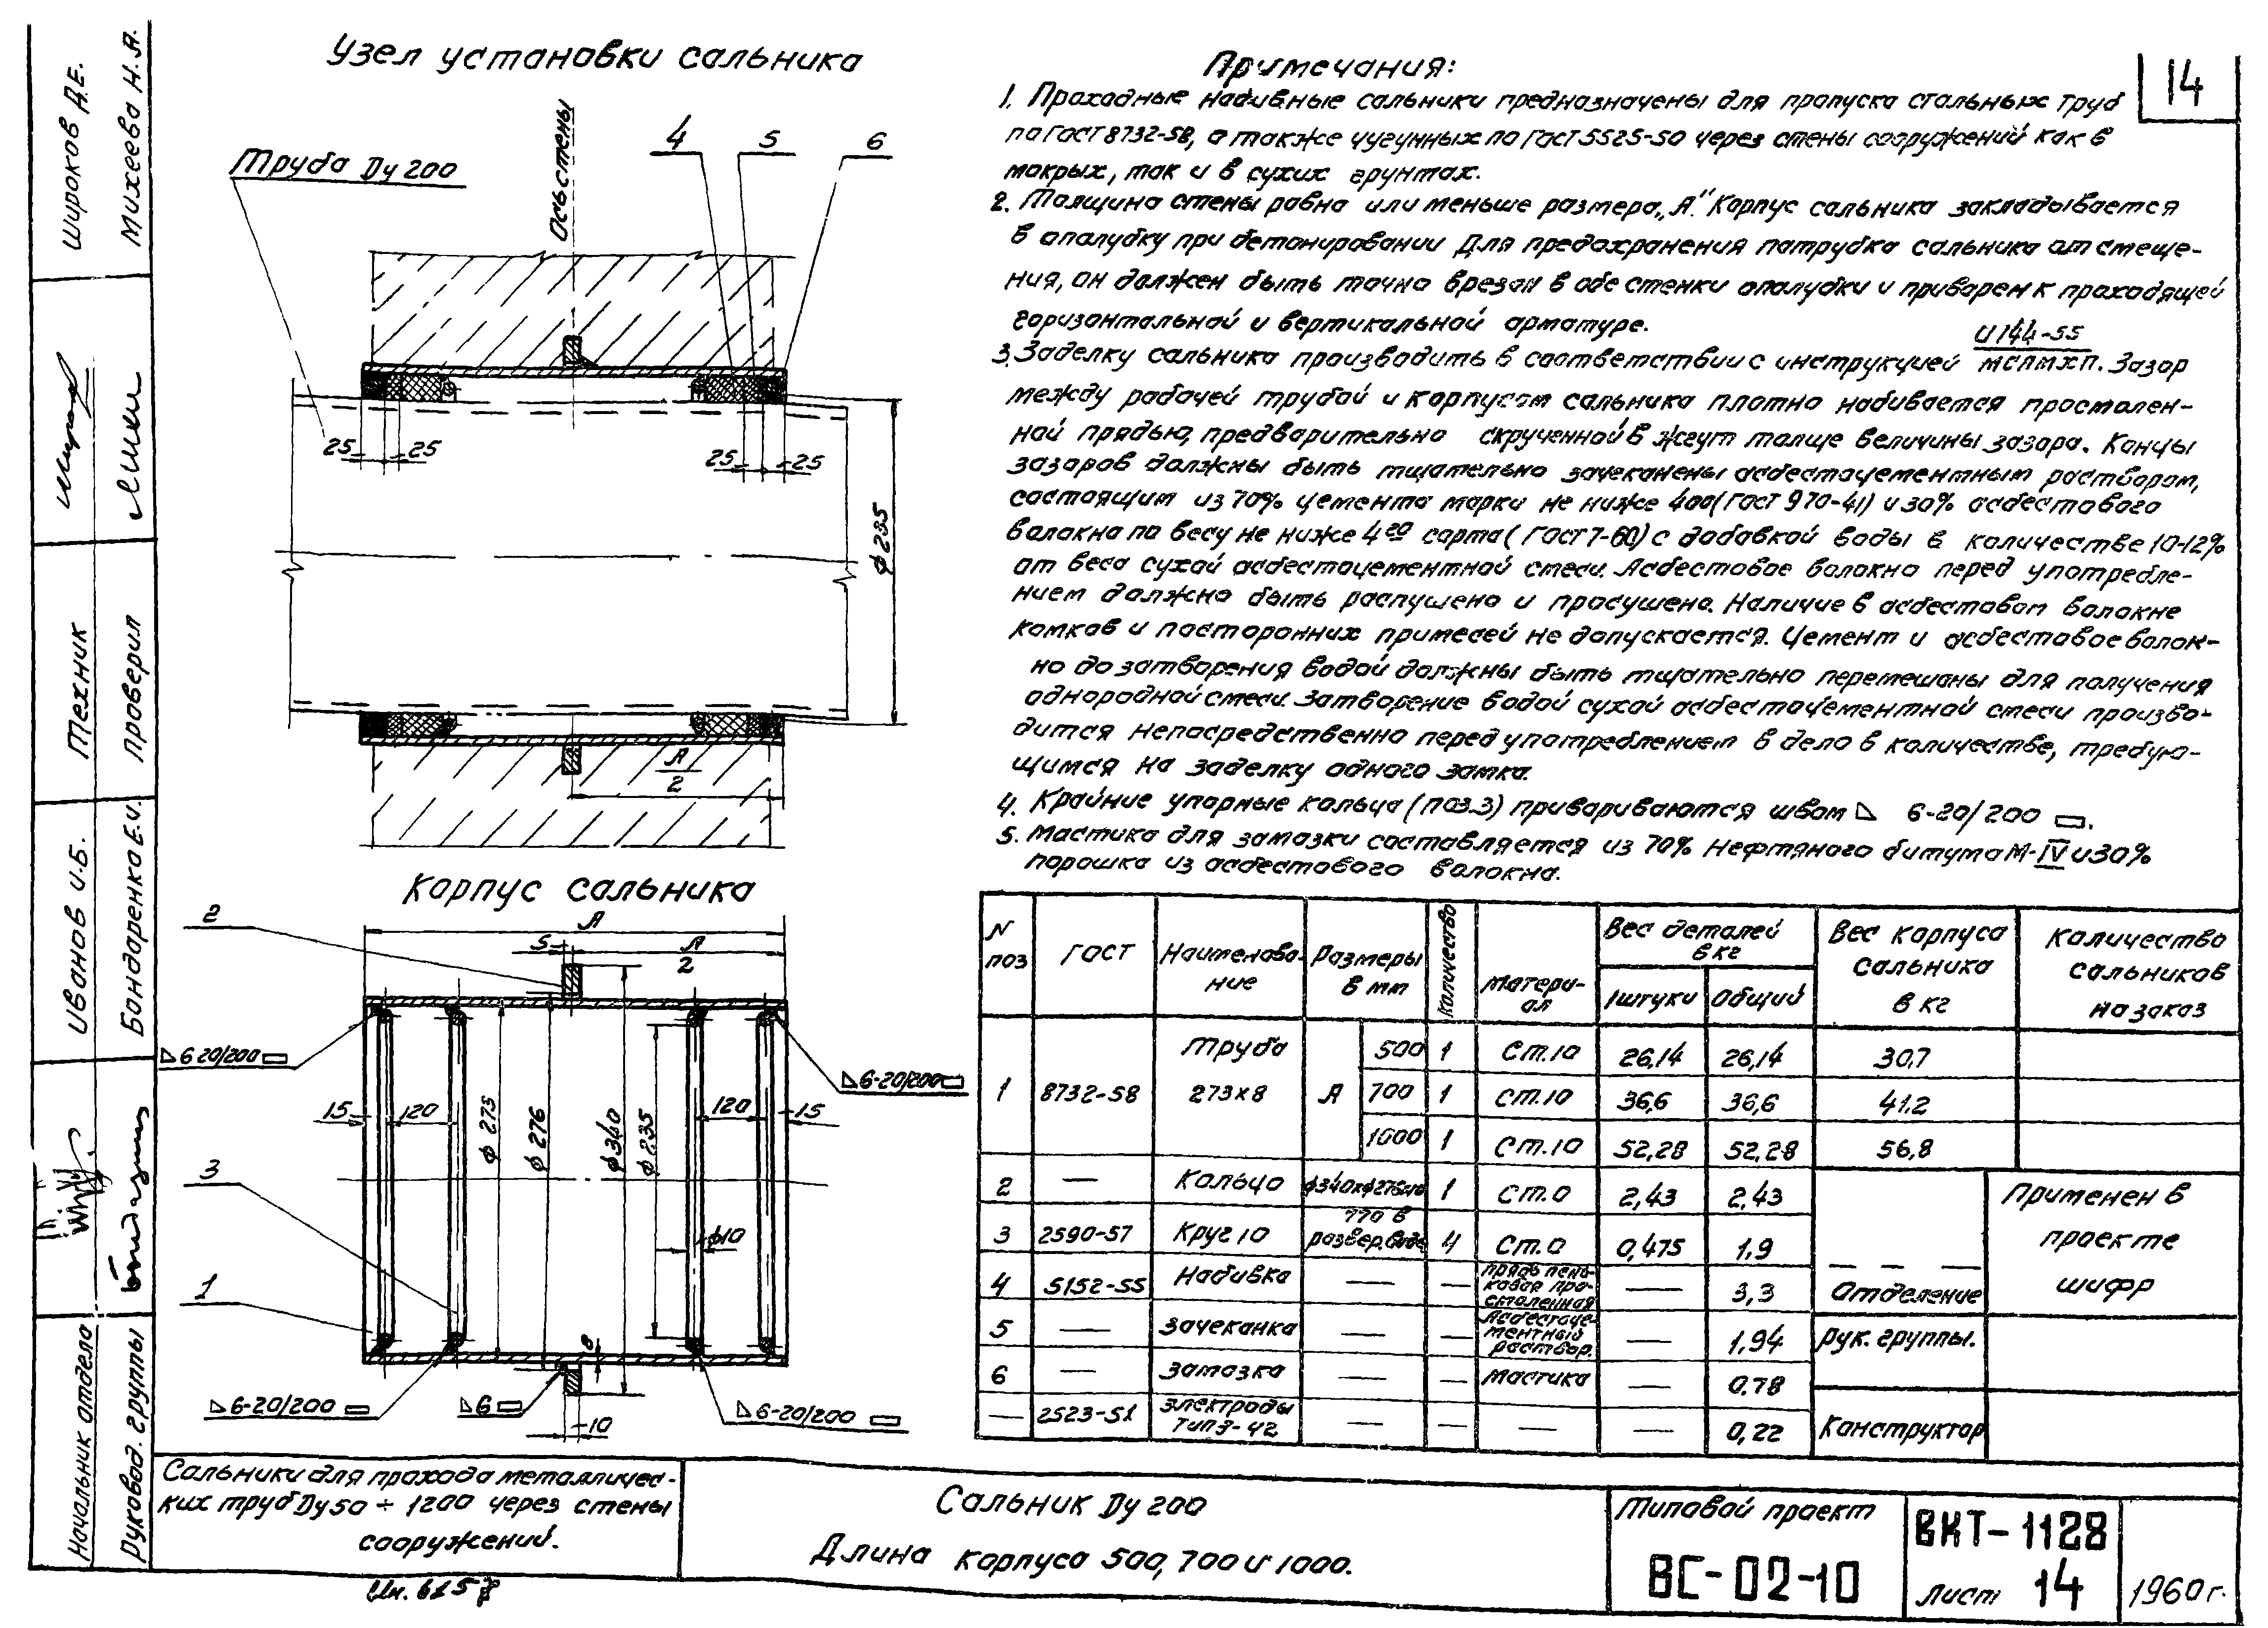 14
Узел установки сальника
Труба Dу 200
Ось стены
4
5
6
25
25
25
25
ϕ235
А
2
Корпус сальника
2
А
5
А
2
6-20/200
6-20/200
15
120
ϕ273
ϕ276
ϕ340
ϕ235
120
15
3
ϕ10
1
8
6-20/200
6
6-20/200
10
Примечания:
1. Проходные набивные сальники предназначены для пропуска стальных труб
по ГОСТ 8732-58, а также чугунных по ГОСТ 5525-50 через стены сооружений как в
мокрых, так и в сухих грунтах.
2. Толщина стены равна или меньше размера „А". Корпус сальника закладывается
в опалубку при бетонировании Для предохранения патрубка сальника от смеще-
ния, он должен быть точно врезан в обе стенки опалубки и приварен к проходящей
горизонтальной и вертикальной арматуре.
И 144-55
3. Заделку сальника производить в соответствии с инструкцией МСПМХП. Зазор
между рабочей трубой и корпусом сальника плотно набивается просмолен-
ной прядью, предварительно скрученной в жгут толще величины зазора. Концы
зазоров должны быть тщательно зачеканены асбестоцементным раствором,
состоящим из 70% цемента марки не ниже 400 (ГОСТ 970-41) и 30% асбестового
волокна по весу не ниже 4го сорта (ГОСТ 7-60) с добавкой воды в количестве 10-12%
от веса сухой асбестоцементной смеси. Асбестовое волокно перед употребле-
нием должно быть распушено и просушено. Наличие в асбестовом волокне
комков и посторонних примесей не допускается. Цемент и асбестовое волок-
но до затворения водой должны быть тщательно перемешаны для получения
однородной смеси. Затворение водой сухой асбестоцементной смеси произво-
дится непосредственно перед употреблением в дело в количестве, требую-
щимся на заделку одного замка.
4. Крайние упорные кольца (поз.3) привариваются швом 6-20/200.
5. Мастика для замазки составляется из 70% нефтяного битума М-IV и 30%
порошка из асбестового волокна.
N поз | ГОСТ | Наименова-ние | Размеры в мм | Количество | Матери-ал | Вес деталей в кг | Вес корпуса сальника в кг | Количество сальников на заказ
1 штуки | Общий
1 | 8732-58 | Труба 273×8 | А | 500 | 1 | Ст.10 | 26,14 | 26,14 | 30,7
700 | 1 | Ст.10 | 36,6 | 36,6 | 41,2
1000 | 1 | Ст.10 | 52,28 | 52,28 | 56,8
2 | — | Кольцо | ϕ340×ϕ276×10 | 1 | Ст.0 | 2,43 | 2,43
3 | 2590-57 | Круг 10 | 770 в развер. виде | 4 | Ст.0 | 0,475 | 1,9
4 | 5152-55 | Набивка | — | — | Прядь пень-ковая про-смоленная | — | 3,3
5 | — | Зачеканка | — | — | Асбестоце-ментный раствор. | — | 1,94
6 | — | Замазка | — | — | Мастика | — | 0,78
— | 2523-51 | Электроды тип Э-42 | — | — | — | — | 0,22
Применен в
проекте
шифр
Отделение
Рук. группы.
Конструктор
Сальники для прохода металличес-
ких труб Dу50 ÷ 1200 через стены
сооружений.
Сальник Dу 200
Длина корпуса 500, 700 и 1000.
Типовой проект
ВС-02-10
ВКТ-1128
лист 14
1960 г.
Широков Д.Е.
Михеева Н.А.
Техник
Проверил
Иванов И.Б.
Бондаренко Е.И.
Начальник отдела
Руковод. группы